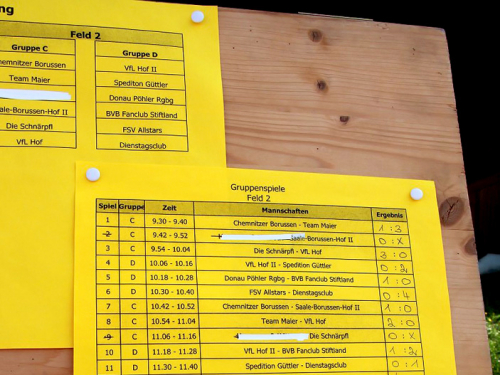 ng
Feld 2
Gruppe C
Gruppe D
hemnitzer Borussen
VfL Hof II
Team Maier
Spediton Güttler
Donau Pöhler Rgbg
aale-Borussen-Hof II
BVB Fanclub Stiftland
Die Schnärpfl
FSV Allstars
VfL Hof
Dienstagsclub
Gruppenspiele
Feld 2
Spiel Gruppe Zeit Mannschaften Ergebnis
1 C 9.30 - 9.40 Chemnitzer Borussen - Team Maier 1 : 3
2 C 9.42 - 9.52 Saale-Borussen-Hof II 0 : X
3 C 9.54 - 10.04 Die Schnärpfl - VfL Hof 3 : 0
4 D 10.06 - 10.16 VfL Hof II - Spedition Güttler 0 : 2
5 D 10.18 - 10.28 Donau Pöhler Rgbg - BVB Fanclub Stiftland 1 : 0
6 D 10.30 - 10.40 FSV Allstars - Dienstagsclub 0 : 4
7 C 10.42 - 10.52 Chemnitzer Borussen - Saale-Borussen-Hof II 1 : 0
8 C 10.54 - 11.04 Team Maier - VfL Hof 2 : 0
9 C 11.06 - 11.16 Die Schnärpfl 0 : X
10 D 11.18 - 11.28 VfL Hof II - BVB Fanclub Stiftland 1 : 2
11 D 11.30 - 11.40 Spedition Güttler - Dienstagsclub 0 : 1